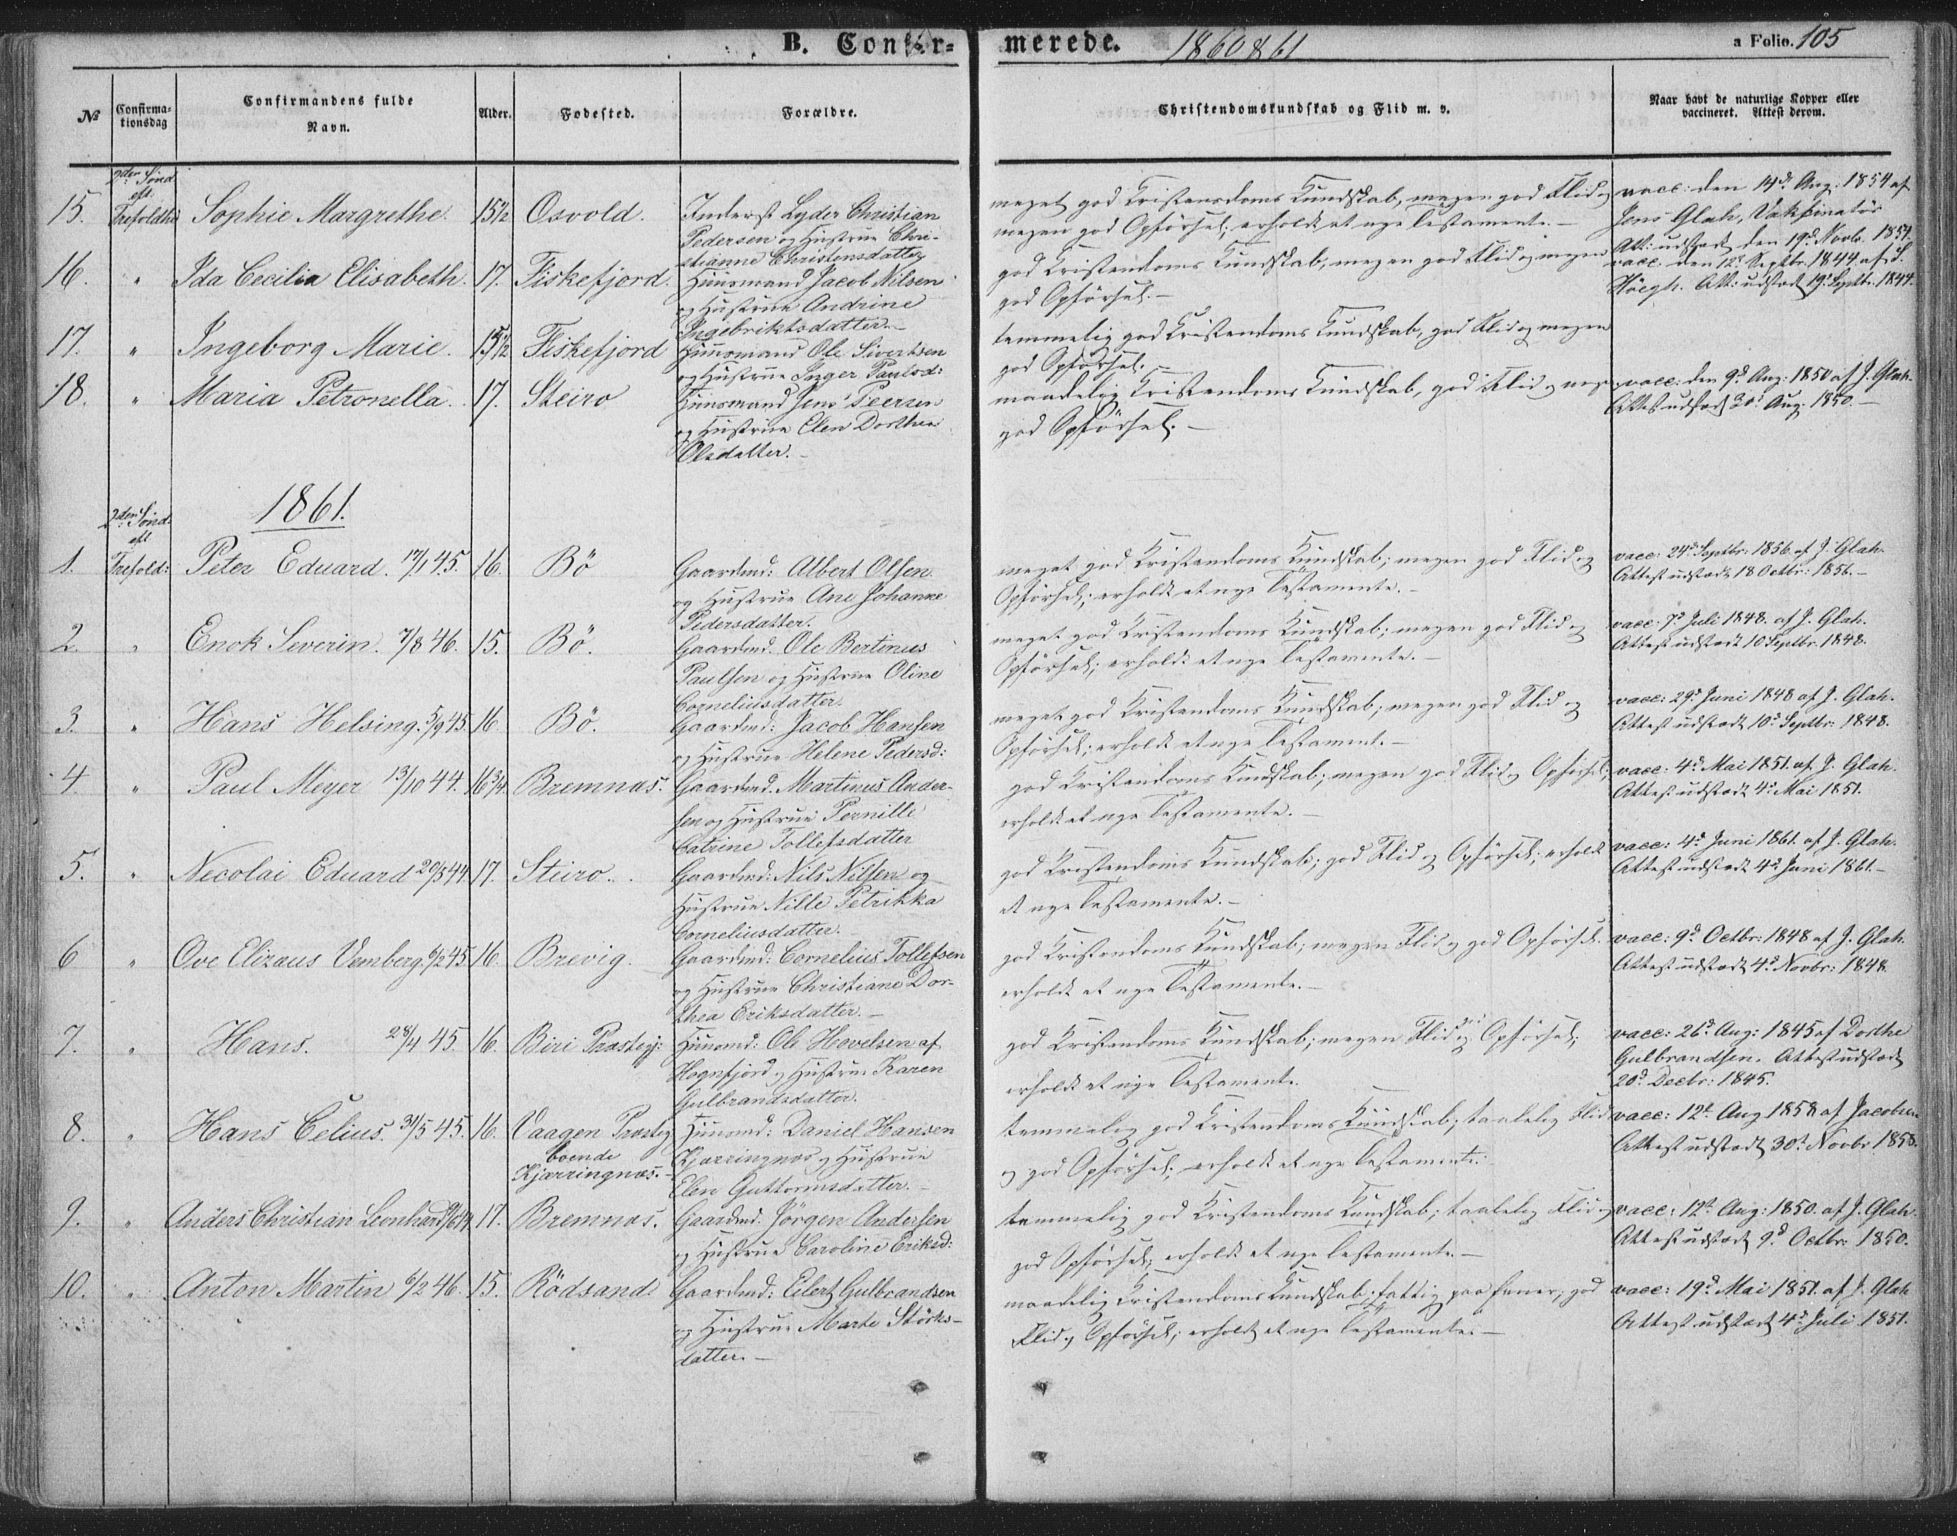 B. Confirmerede. 1860 & 61 a Folio. 105
No Confirmationsdag Confirmandens fulde Navn. Alder. Fødested. Forældre. Christendomskundskab og Flid m. v. Naar havt de naturlige Kopper eller vaccineret. Attest derom.
2den Sönd. eft.
15. Trefoldh. Sophie Margrethe. 15½ Osvold. Inderst Lyder Christian
Pedersen og Hustrue Chri-
stianne Christensdatter
meget god Kristendoms Kundskab, megen god Flid og
megen god Opförsel; erholdt et nye Testamente. –
vacc: den 14de Aug: 1854 af
Jens Glah, Vakſinatör
Att: udstædt den 19d Novbr. 1854.
16. " Ida Cecilia Elisabeth. 17. Fiskefjord. Huusmand Jacob Nilsen
og Hustrue Andrine
Ingebriktsdatter. –
god Kristendoms Kundskab, megen god Flid og megen
god Opförsel. –
vacc. den 12t Septbr. 1844 af S.
Höegh. Att: udstædt 19d Septbr. 1844.
17. " Ingeborg Marie. 15½ Fiskefjord Huusmand Ole Sivertsen
og Hustrue Inger Paulsd:
temmelig god Kristendoms Kundskab, god Flid og megen
god Opförsel. –
18. " Maria Petronella. 17. Steiro Huusmand Jens Peersen
og Hustrue Elen Dorthea
Olsdatter. –
maadelig Kristendoms Kundskab, god Flid og megen
god Opförsel. –
vacc: den 9d Aug: 1850 af J. Glah.
Attest udstædt 30t Aug. 1850. –
1861.
2den Sönd. eft.
1. Trefold: Peter Eduard. 17/1 45. 16. Bö Gaardmd: Albert Olsen
og Hustrue Ane Johanne
Pedersdatter.
meget god Kristendoms Kundskab; megen god Flid og
Opförsel; erholdt et nye Testamente. –
vacc: 24d Septbr: 1856 af J. Glah.
Attest udstædt 18 Octbr: 1856. –
2. " Enok Severin. 7/8 46. 15. Bö. Gaardmd. Ole Bertinus
Paulsen og Hustrue Oline
Corneliusdatter.
meget god Kristendoms Kundskab; megen god Flid og
Opförsel; erholdt et nye Testamente. –
vacc: 7d Juli 1848. af J. Glah.
Attest udstædt 10 Septbr. 1848.
3. " Hans Helsing. 5/9 45. 16. Bö. Gaardmd: Jacob Hansen
og Hustrue Helene Pedersd:
meget god Kristendoms Kundskab; megen god Flid og
Opförsel; erholdt et nye Testament. –
vacc: 29d Juni 1848 af J. Glah.
Attest udstædt 10d Septbr: 1848.
4. " Paul Meyer 13/10 44. 16¾. Bremnæs. Gaardmd. Martinus Ander-
sen og Hustrue Pernille
Catrine Tollefsdatter
god Kristendoms Kundskab; megen god Flid og Opförsel;
erholdt et nye Testamente. –
vacc: 4d Mai 1851. af J. Glah.
Attest udstædt 4d Mai 1851.
5. " Necolai Eduard 20/5 44 17. Steiro. Gaardmd: Nils Nilsen og
Hustrue Nille Petrikka
Corneliusdatter.
god Kristendoms Kundskab; god Flid og Opförsel; erholdt
et nye Testamente. –
vacc: 4d Juni 1861. af J. Glah.
Attest udstædt 4d Juni 1861. –
6 " Ove Elizæus Vemberg. 6/2 45. 16. Brevig. Gaardmd: Cornelius Tollefsen
og Hustrue Christiane Dor-
thea Eriksdatter. –
god Kristendoms Kundskab; megen Flid og god Opförsel.
erholdt et nye Testamente. –
vacc: 9d Octbr: 1848 af J. Glah.
Attest udstædt 4d Novbr: 1848.
7. " Hans. 28/4 45. 16. Biri Præstegj: Huusmd: Ole Hovelsen af
Hognfjord og Hustrue Karen
Gulbrandsdatter.
god Kristendoms Kundskab; megen Flid og Opförsel;
erholdt et nye Testamente.
vacc: 26d Aug: 1845 af Dorthe
Gulbrandsen. Attest udstædt
20d Decbr: 1845.
8. " Hans Celius. 31/5 45. 16. Vaagen Præsteg
boende
Kjærringnæs. –
Huusmd: Daniel Hansen
Kjærringnæs og Hustrue
Elen Guttormsdatter. –
temmelig god Kristendoms Kundskab; taalelig Flid
og god Opförsel; erholdt et nye Testamente.
vacc: 12t Aug 1858 af Jacobsen
Attest udstædt 30t Novbr 1858.
9. " Anders Christian Leonhard 17. Bremnæs. Gaardmd. Jörgen Andersen
og Hustrue Caroline Eriksd:
temmelig god Kristendoms Kundskab; taalelig Flid og
god Opförsel; erholdt et nye Testamente. –
vacc: 12t Aug: 1850. af J. Glah.
Attest udstædt 9d Octbr: 1850.
10. " Anton Martin 6/2 46. 15. Rödsand Gaardmd: Eilert Gulbrandsen
og Hustrue Marte Störks-
datter. –
maadelig Kristendoms Kundskab; fattig paa Evner; god
Flid og Opförsel; erholdt et nye Testamente. –
vacc: 19d Mai 1851. af J. Glah
Attest udstædt 4d Juli 1851.